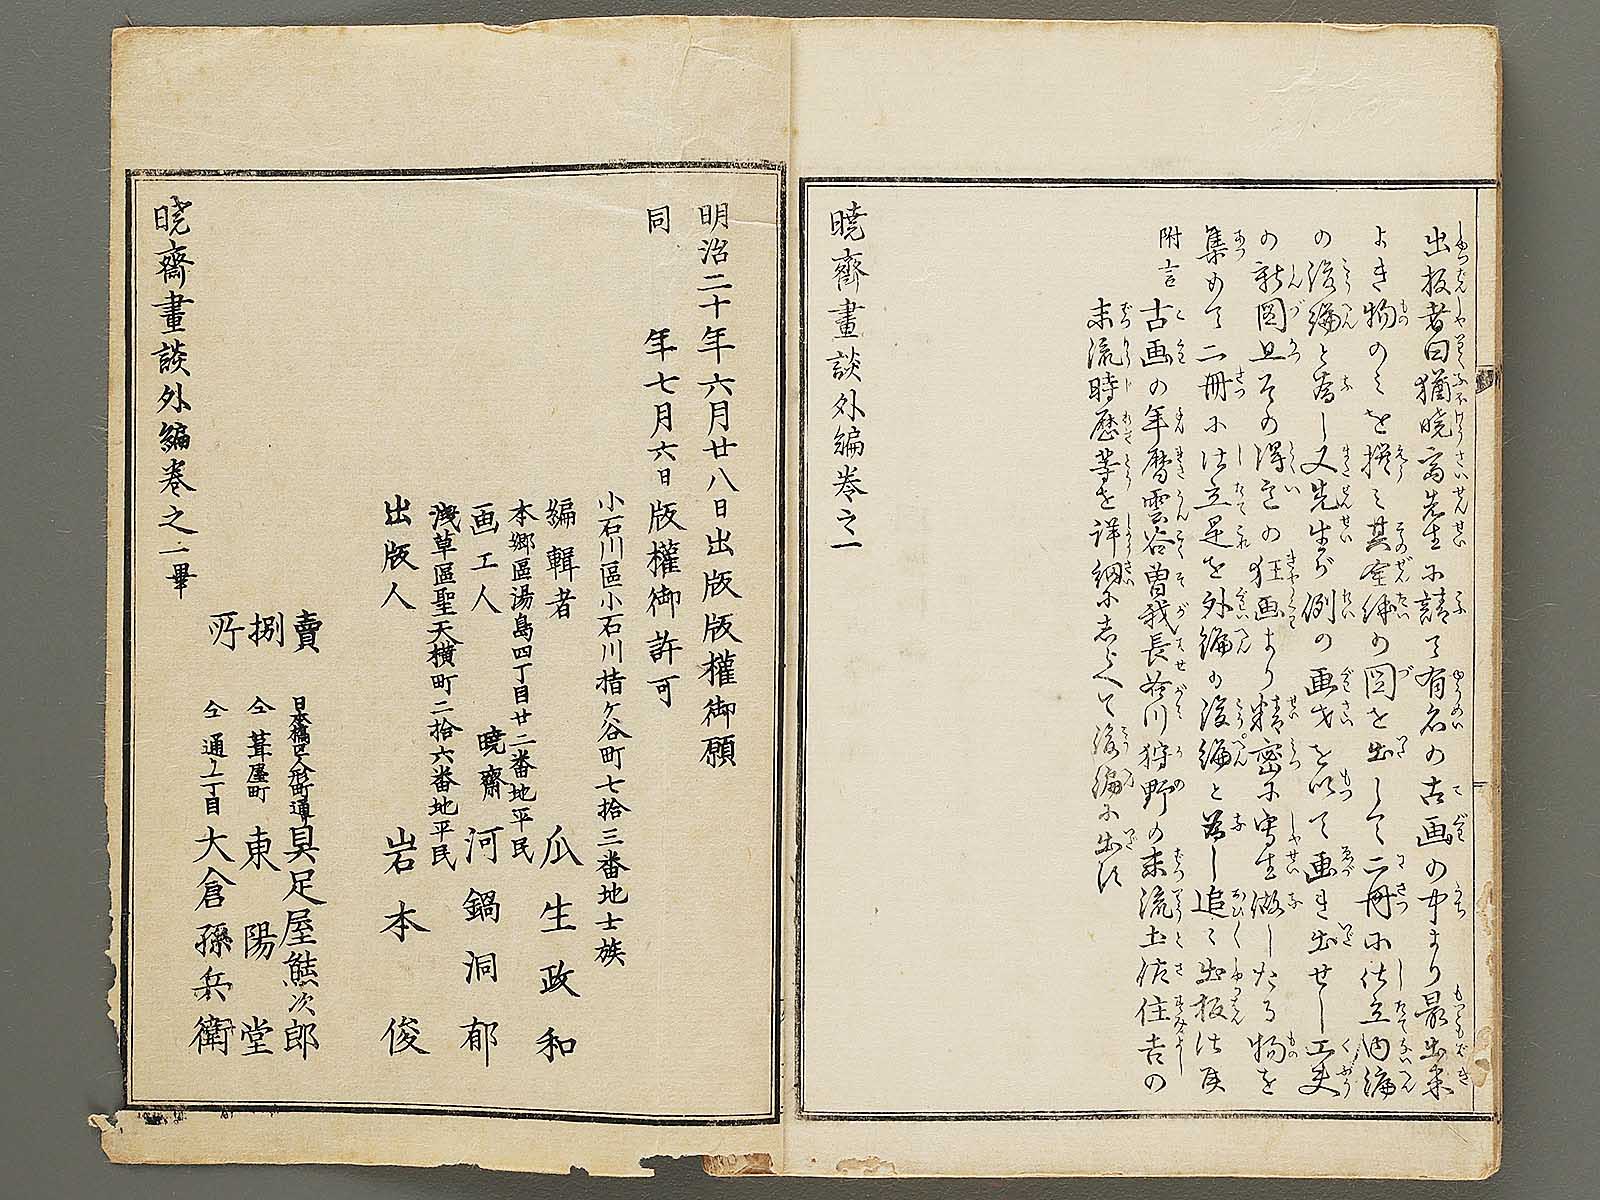 出板者曰猶暁斎先生に請て有名の古画の中より最出来
よき物のミを撰ミ其全体の図を出して二冊に仕立内編
の後編と為し又先生が例の画才を以て画き出せし工夫
の新図且その得意の狂画より精密に写生做したる物を
集めて二冊に仕立是を外編の後編と為し追々出板仕候
附言
古画の年暦雲谷曽我長谷川狩野の末流土佐住吉の
末流時歴等を詳細にしらべて後編に出す
暁齋畫談外編卷之一
明治二十年六月廿八日出版版權御願
同 年七月六日版權御許可
小石川區小石川指ヶ谷町七拾三番地士族
編輯者 瓜生政和
本郷區湯島四丁目廿二番地平民
画工人 暁齋 河鍋洞郁
浅草區聖天横町二拾六番地平民
出版人 岩本俊
賣捌所
日本橋区人形町通り 具足屋熊次郎
仝葺屋町 東陽堂
仝通一丁目 大倉孫兵衛
暁齋畫談外編卷之二畢